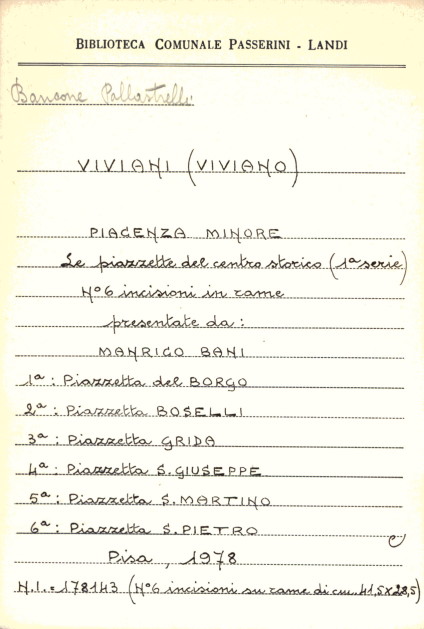 BIBLIOTECA COMUNALE PASSERINI - LANDI
Barsone Pallastrelli
VIVIANI (VIVIANO)
PIACENZA MINORE
Le piazzette del centro storico (1ª serie)
N°6 incisioni in rame
presentate da:
MANRICO BANI
1ª: Piazzetta del BORGO
2ª: Piazzetta BOSELLI
3ª: Piazzetta GRIDA
4ª: Piazzetta S. GIUSEPPE
5ª: Piazzetta S. MARTINO
6ª: Piazzetta S. PIETRO
Pisa, 1978
N.I. = 178143 (N°6 incisioni su rame di cm. 41,5 x 28,5)